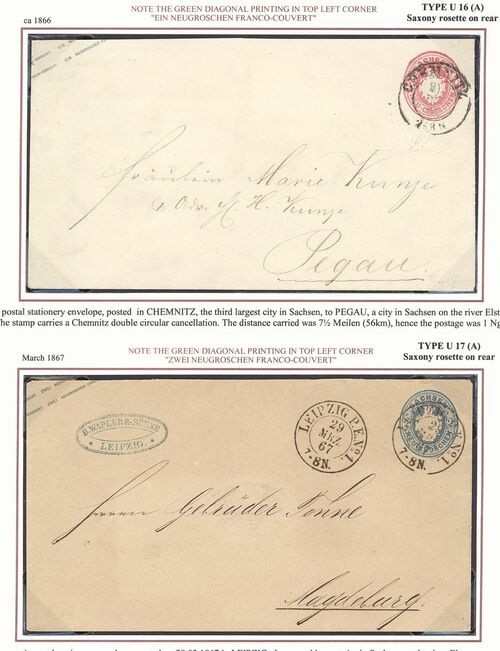 NOTE THE GREEN DIAGONAL PRINTING IN TOP LEFT CORNER
"EIN NEUGROSCHEN FRANCO-COUVERT"
TYPE U 16 (A)
Saxony rosette on rear
ca 1866
CHEMNITZ
7-8 N.
Fräulein Marie Kunze
H. Kunze
Pegau
postal stationery envelope, posted in CHEMNITZ, the third largest city in Sachsen, to PEGAU, a city in Sachsen on the river Elst
he stamp carries a Chemnitz double circular cancellation. The distance carried was 7½ Meilen (56km), hence the postage was 1 Ng
NOTE THE GREEN DIAGONAL PRINTING IN TOP LEFT CORNER
"ZWEI NEUGROSCHEN FRANCO-COUVERT"
TYPE U 17 (A)
Saxony rosette on rear
March 1867
H. WAPLER & SÖHNE
LEIPZIG.
LEIPZIG P.E. No 1.
29
MRZ
67
7-8N.
SACHSEN
7-8N.
Herren Gebrüder Tonne
Magdeburg.